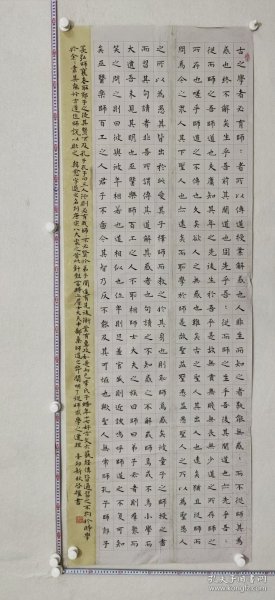 古之學者必有師〻者所以傳道授業解惑也人非生而知之者孰能無惑而不從師其為
惑也終不解矣生乎吾前其聞道也固先乎吾〻從而師之生乎吾後其聞道也亦先乎吾〻
從而師之吾師道也夫庸知其年之先後生於吾乎是故無貴無賤無長無少道之所存師之
所存也嗟乎師道之不傳也久矣欲人之無惑也難矣古之聖人其出人也遠矣猶且從師而
問焉今之眾人其下聖人也亦遠矣而恥學於師是故聖益聖愚益愚聖人之所以為聖愚人
之所以為愚其皆出於此乎愛其子擇師而教之於其身也則恥師焉惑矣彼童子之師授之書
而習其句讀者非吾所謂傳其道解其惑者也句讀之不知惑之不解或師焉或不焉小學而
大遺吾未見其明也巫醫樂師百工之人不恥相師士大夫之族曰師曰弟子云者則羣聚而
笑之問之則曰彼與彼年相若也道相似也位卑則足羞官盛則近諛嗚呼師道之不復可知
矣巫醫樂師百工之人君子不齒今其智乃反不能及其可怪也歟聖人無常師孔子師郯子
萇弘師襄老聃郯子之徒其賢不及孔子孔子曰三人行則必有我師是故弟子不必不如師師不必賢於弟子聞道有先後術業有專攻如是而已李氏子蟠年十七好古文六藝經傳皆通習之不拘於時學
於余余嘉其能行古道作師說以貽之 韓愈 唐宋八大家之 辛卯新秋 書